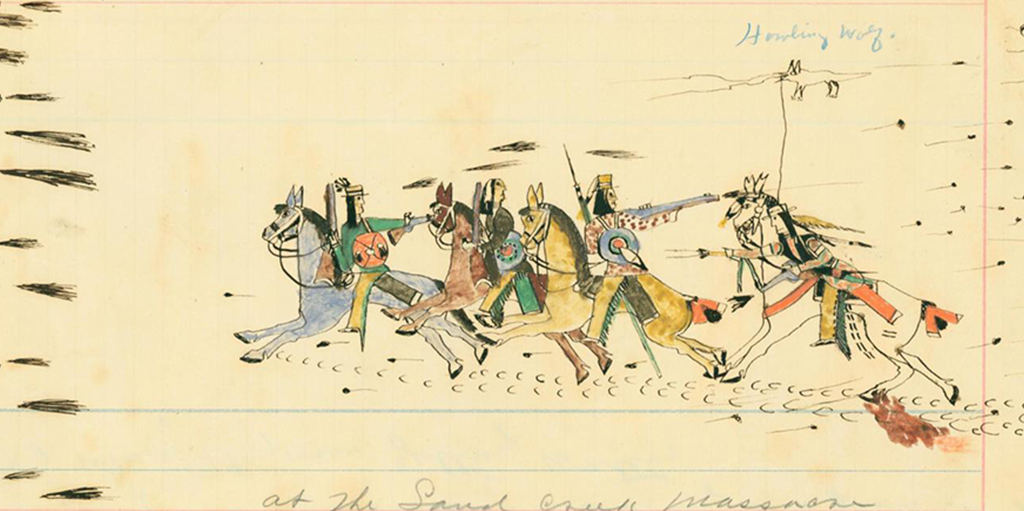 Howling Wolf.
at the Sand Creek Massacre